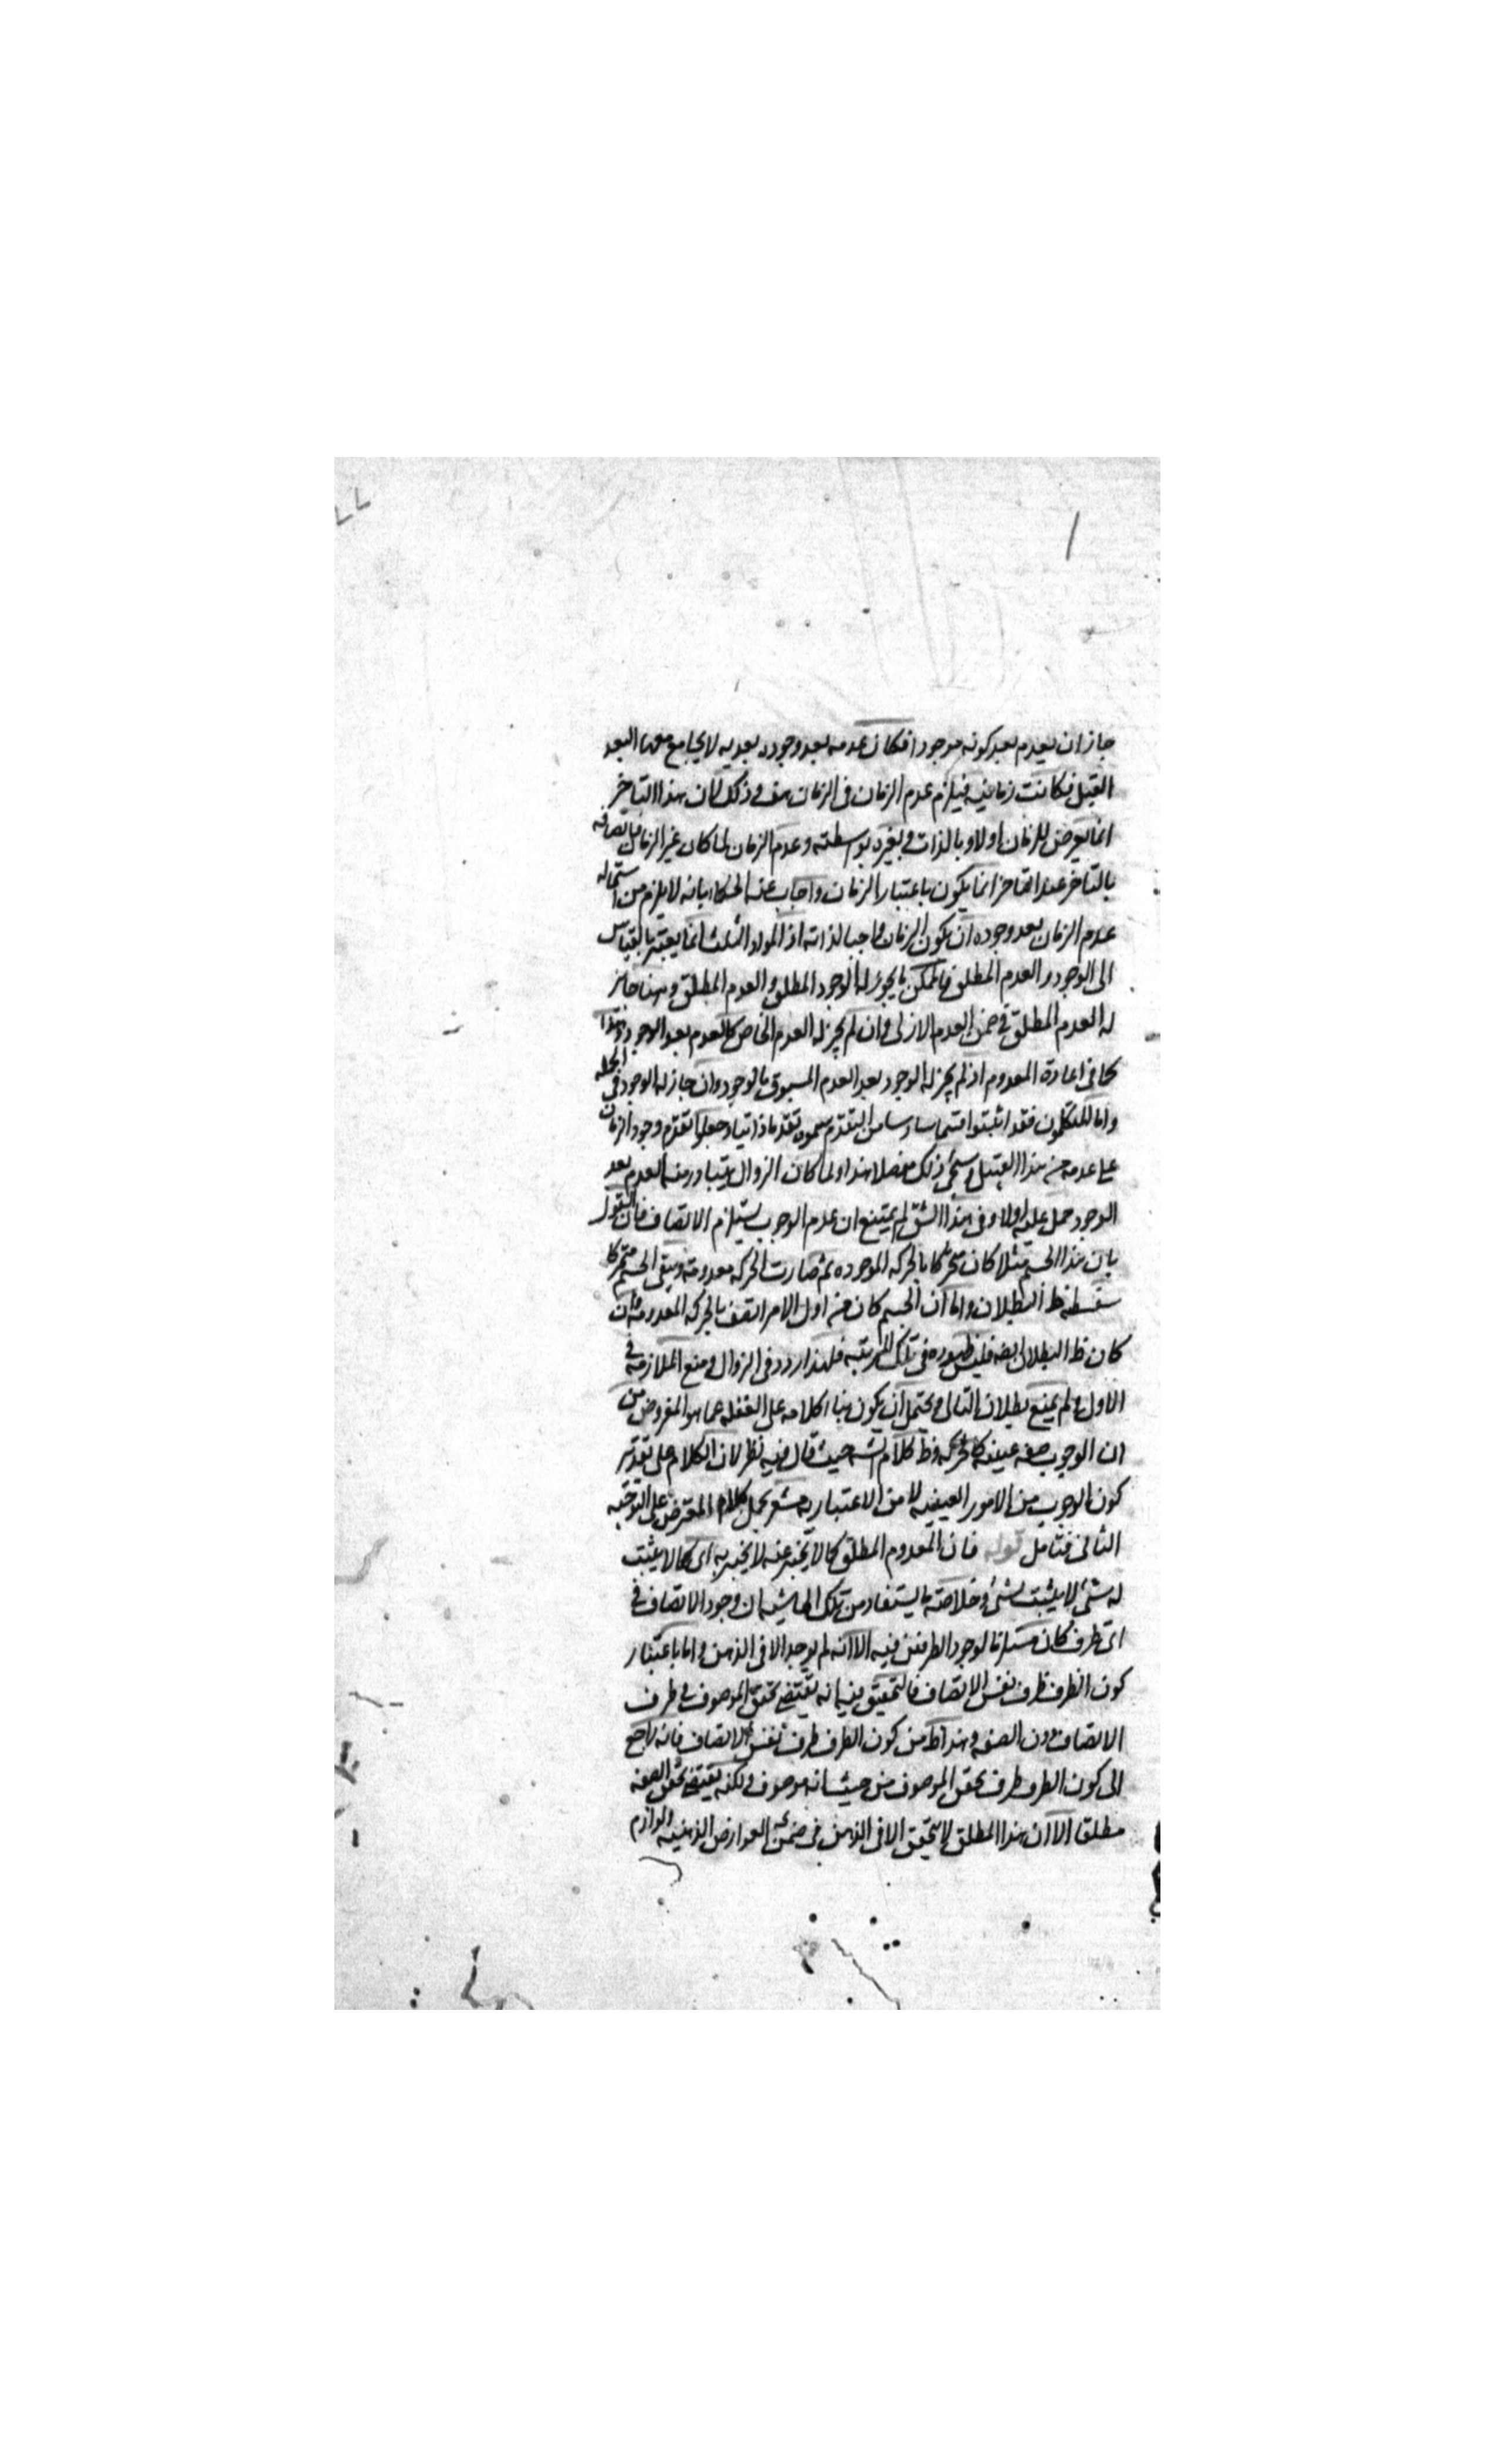 جاز ان يعدم بعد كونه موجودا فكان عدمه بعد وجوده بعدية لا يجامع معها البعد
القبل فكانت زمانية فيلزم عدم الزمان فى الزمان هف وذلك لان هذا التاخر
انما يعرض للزمان اولا وبالذات ولغيره بواسطته وعدم الزمان لما كان غير الزمان فاتصافه
بالتاخر عند انما يكون باعتبار الزمان واجاب عنه الحكماء بانه لا يلزم من استحالة
عدم الزمان بعد وجوده ان يكون الزمان واجبا لذاته اذ المواد الثلث انما يعتبر بالقياس
الى الوجود والعدم المطلق فالممكن ما يجوز له الوجود المطلق والعدم المطلق وههنا جاز
له العدم المطلق فى ضمن العدم الازلى وان لم يجز له العدم الخاص كالعدم بعد الوجود وهذا
كما فى اعادة المعدوم اذ لم يجز له الوجود بعد العدم المسبوق بالوجود وان جاز له الوجود فى الجملة
واما المتكلمون فقد اثبتوا قسما سادسا من التقدم سموه تقدما ذاتيا وجعلوا تقدم وجود الزمان
على عدمه من هذا القبيل وسيجئ ذلك مفصلا هذا ولما كان الزوال يتبادر منه العدم بعد
الوجود حمل عليه اولا وفى هذا الشق لم يمتنع ان عدم الوجوب يستلزم الاتصاف فان القول
بان هذا الجسم مثلا كان متحركا بالحركة الموجودة ثم صارت الحركة معدومة ويبقى الجسم متحركا
سفسطة ظ البطلان واما ان الجسم كان من اول الامر اتصف بالحركة المعدومة وان
كان ظ البطلان ايضا فليس ظهوره فى تلك المرتبة فلهذا ردد فى الزوال ومنع الملازمة فى
الاول ولم يمنع بطلان التالى ويحتمل ان يكون بناء كلامه على الغفلة عما هو المفروض من
ان الوجوب صفة عينية كالحركة وظ كلام الشه حيث قال فيه نظر لان الكلام على تقدير
كون الوجوب من الامور العينية لا من الاعتبارية مشعر بحمل كلام المعترض على التوجيه
الثانى فتامل قوله فان المعدوم المطلق كما لا يخبر عنه لا يخبر به اى كما لا يثبت
له شئ لا يثبت لشئ وخلاصة ما يستفاد من تلك الحاشية ان وجود الاتصاف فى
اى ظرف كان مستلزما لوجود الطرفين فيه الا انه لم يوجد الا فى الذهن واما باعتبار
كون الظرف ظرف نفس الاتصاف فالتحقيق فيه انه يقتضى تحقق الموصوف فى ظرف
الاتصاف دون الصفة وهذا ظ من كون الظرف ظرف نفس الاتصاف فانه راجع
الى كون الظرف ظرف تحقق الموصوف من حيث انه موصوف ولكنه يقتضى تحقق الصفة
مطلقا الا ان هذا المطلق لا يتحقق الا فى الذهن فى ضمن العوارض الذهنية ولوازم